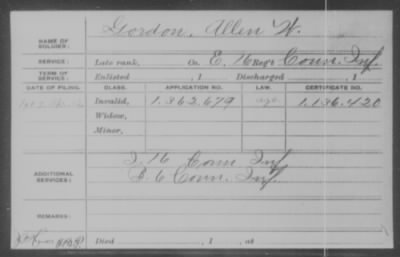 NAME OF SOLDIER: Gordon, Allen H.
SERVICE: Late rank, Co. E, 16 Reg't Conn. Inf.
TERM OF SERVICE: Enlisted , 1 Discharged , 1
DATE OF FILING. CLASS. APPLICATION NO. LAW. CERTIFICATE NO.
Invalid, 1.362.679 1.136.420
Widow,
Minor,
ADDITIONAL SERVICES: 16 Conn. Inf
6 Conn. Inf.
REMARKS:
Died , 1 , at